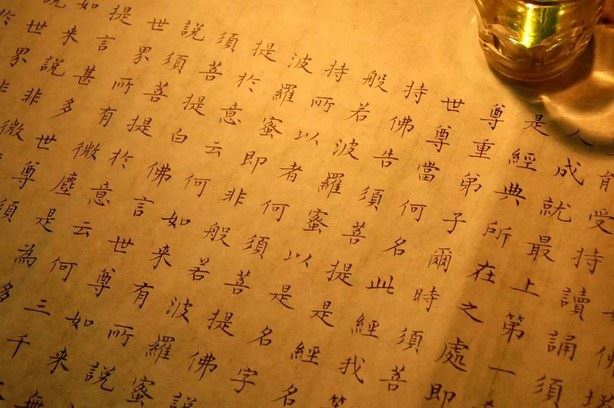 能受持讀誦須
人成就最上第一
是經典所在之處即
尊重弟子爾時須菩
世尊當何名此經我
持佛告須菩提是經名
般若波羅蜜以是名字
持所以者何須菩提佛說
波羅蜜即非般若波羅蜜
提於意云何如來有所說
須菩提白佛言世尊如來無
說須菩提於意云何三千
提世界所有微塵是為多
提言甚多世尊須
如來說非微
世界